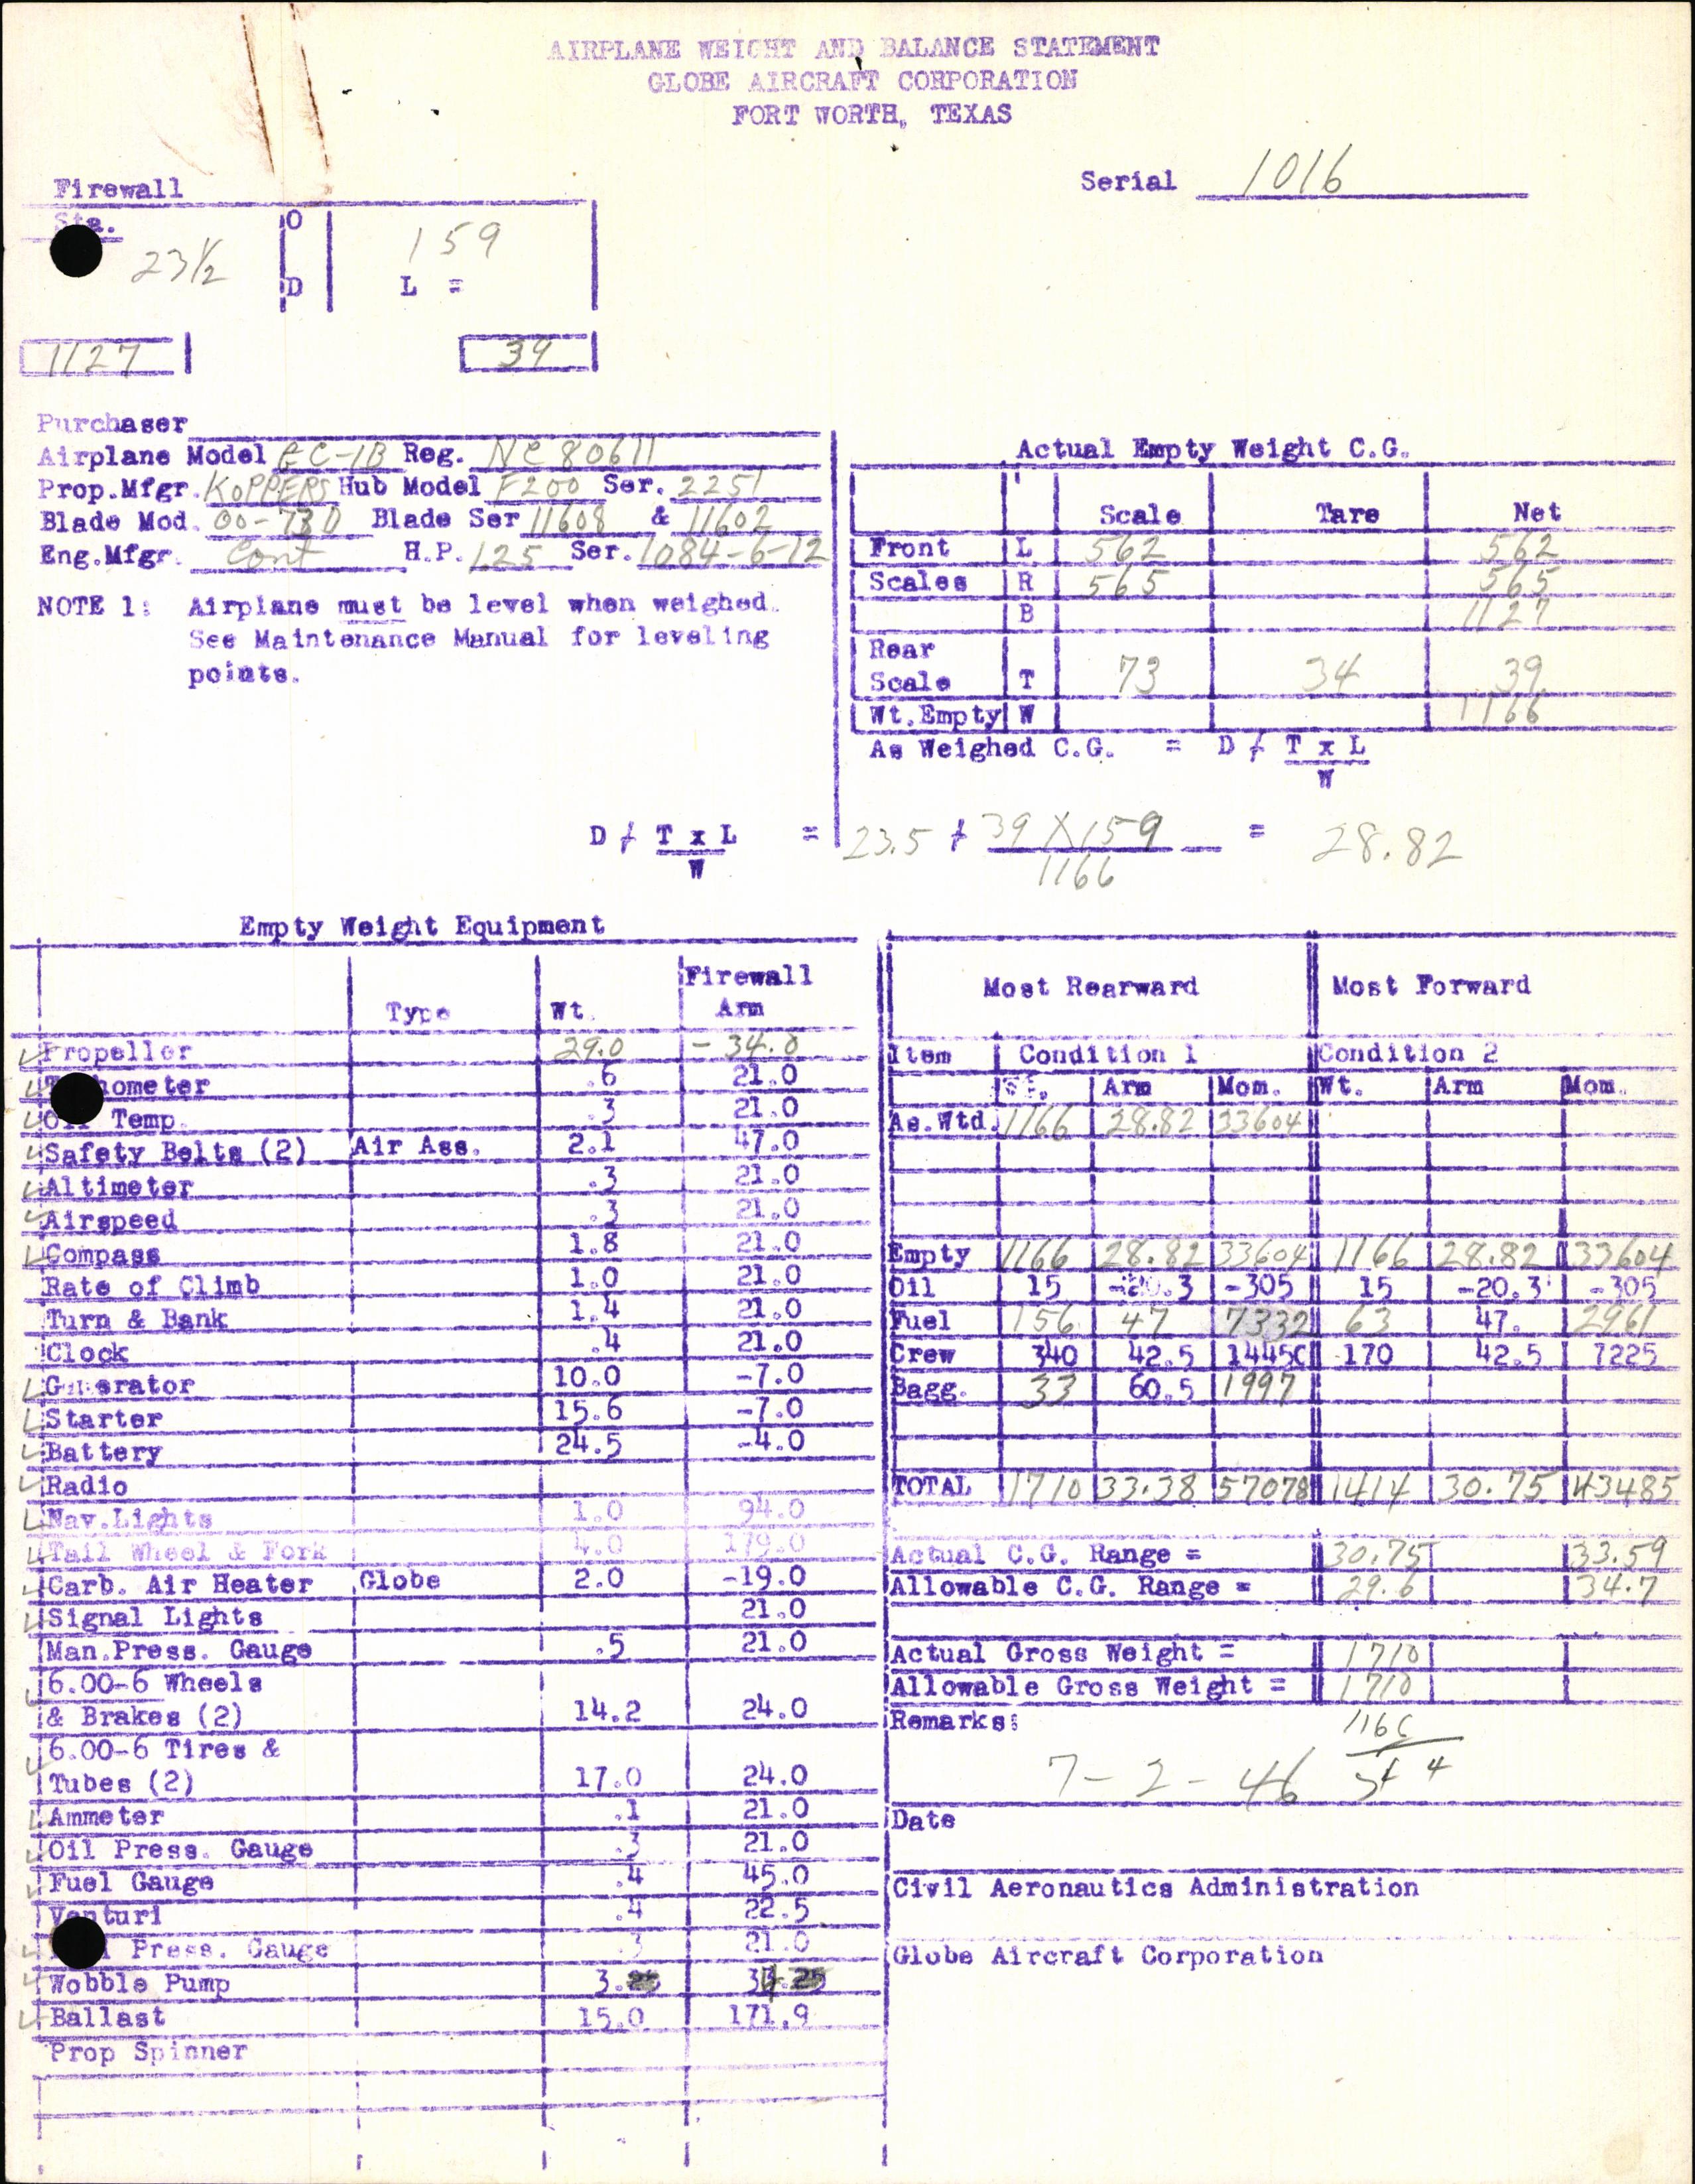 AIRPLANE WEIGHT AND BALANCE STATEMENT
GLOBE AIRCRAFT CORPORATION
FORT WORTH, TEXAS
Serial 1016
Firewall
Sta.
23 1/2
O
D
159
L =
1127
39
Purchaser
Airplane Model GC-1B Reg. NC 80611
Prop.Mfgr. KOPPERS Hub Model F200 Ser. 2251
Blade Mod. 00-73D Blade Ser 11608 & 11602
Eng.Mfgr. Cont H.P. 125 Ser. 1084-6-12
NOTE 1: Airplane must be level when weighed.
See Maintenance Manual for leveling
points.
Actual Empty Weight C.G.
Scale Tare Net
Front L 562 562
Scales R 565 565
B 1127
Rear
Scale T 73 34 39
Wt.Empty W 1166
As Weighed C.G. = D + T x L
W
D + T x L = 23.5 + 39 X 159 = 28.82
W 1166
Empty Weight Equipment
Type Wt. Firewall
Arm
Propeller 29.0 - 34.0
Tachometer .6 21.0
Oil Temp. .3 21.0
Safety Belts (2) Air Ass. 2.1 47.0
Altimeter .3 21.0
Airspeed .3 21.0
Compass 1.8 21.0
Rate of Climb 1.0 21.0
Turn & Bank 1.4 21.0
Clock .4 21.0
Generator 10.0 -7.0
Starter 15.6 -7.0
Battery 24.5 -4.0
Radio
Nav.Lights 1.0 94.0
Tail Wheel & Fork 4.0 179.0
Carb. Air Heater Globe 2.0 -19.0
Signal Lights 21.0
Man.Press. Gauge .5 21.0
6.00-6 Wheels
& Brakes (2) 14.2 24.0
6.00-6 Tires &
Tubes (2) 17.0 24.0
Ammeter .1 21.0
Oil Press. Gauge .3 21.0
Fuel Gauge .4 45.0
Venturi .4 22.5
Press. Gauge .3 21.0
Wobble Pump
Ballast 15.0 171.9
Prop Spinner
Most Rearward Most Forward
Item Condition 1 Condition 2
Wt. Arm Mom. Wt. Arm Mom.
As.Wtd. 1166 28.82 33604
Empty 1166 28.82 33604 1166 28.82 33604
Oil 15 -20.3 -305 15 -20.3 -305
Fuel 156 47 7332 63 47. 2961
Crew 340 42.5 14450 170 42.5 7225
Bagg. 33 60.5 1997
TOTAL 1710 33.38 57078 1414 30.75 43485
Actual C.G. Range = 30.75 33.59
Allowable C.G. Range = 29.6 34.7
Actual Gross Weight = 1710
Allowable Gross Weight = 1710
Remarks:
7-2-46
Date
Civil Aeronautics Administration
Globe Aircraft Corporation